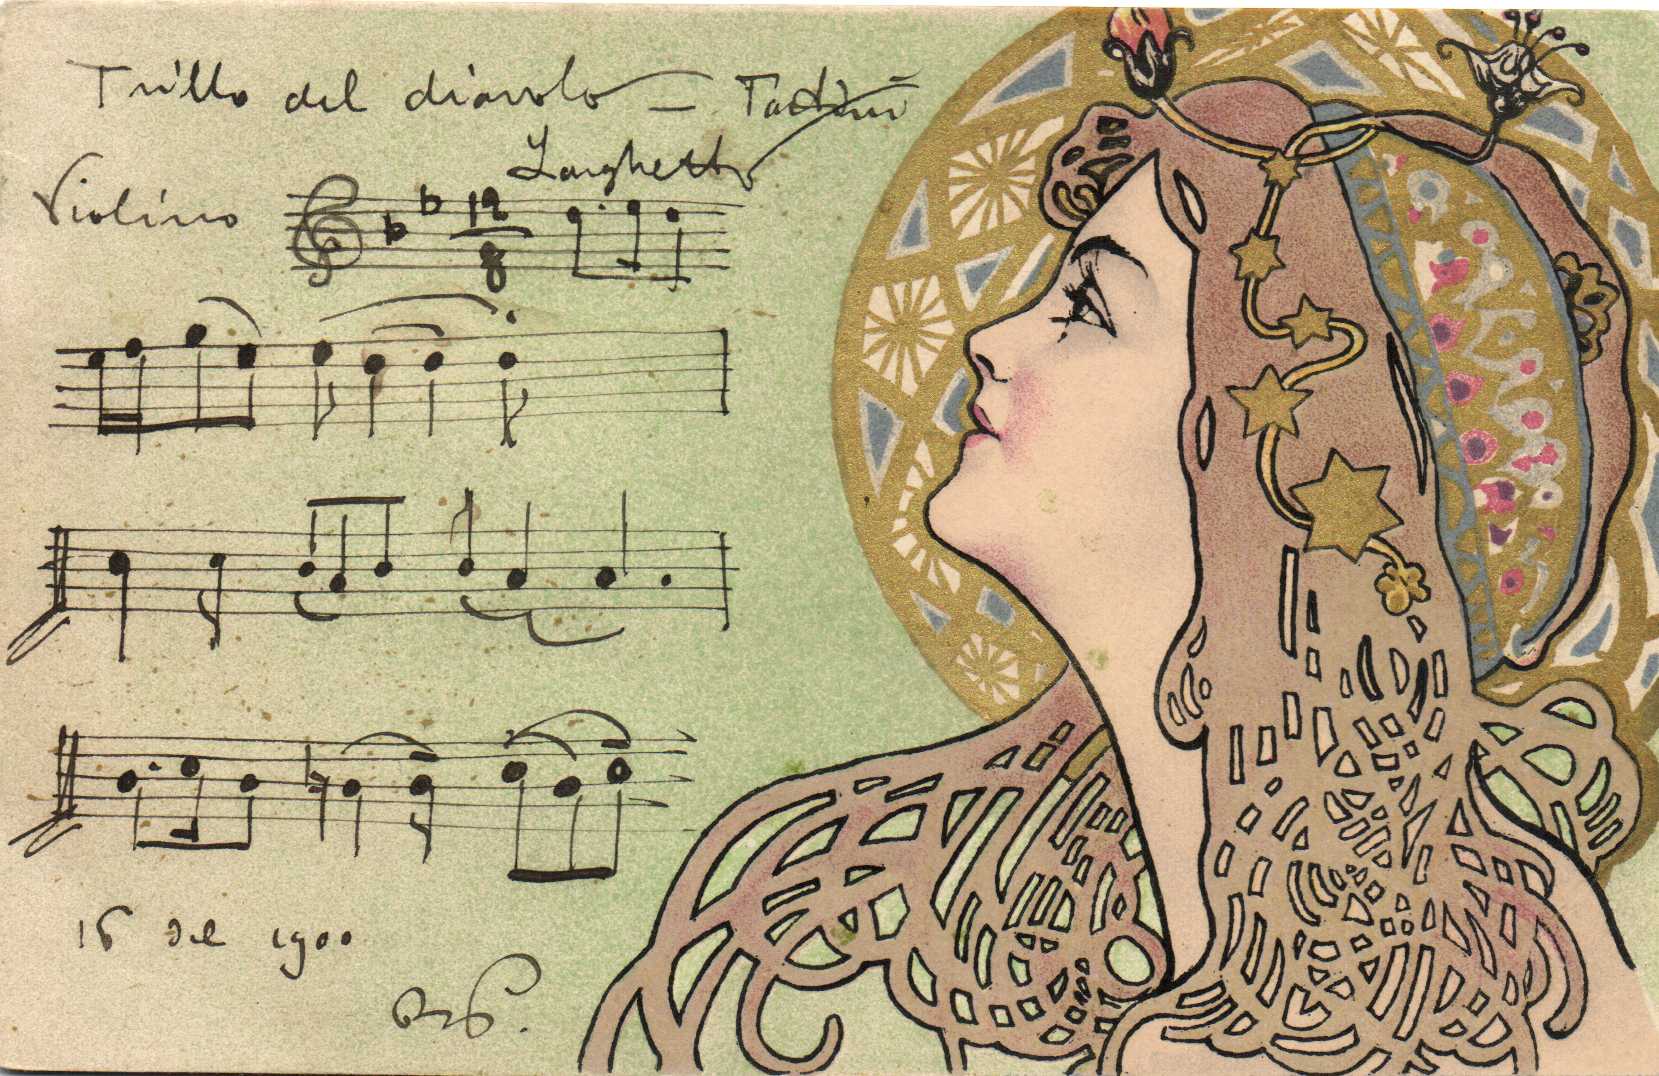 Trillo del diavolo – Tartini
Larghetto
Violino
12
8
1900